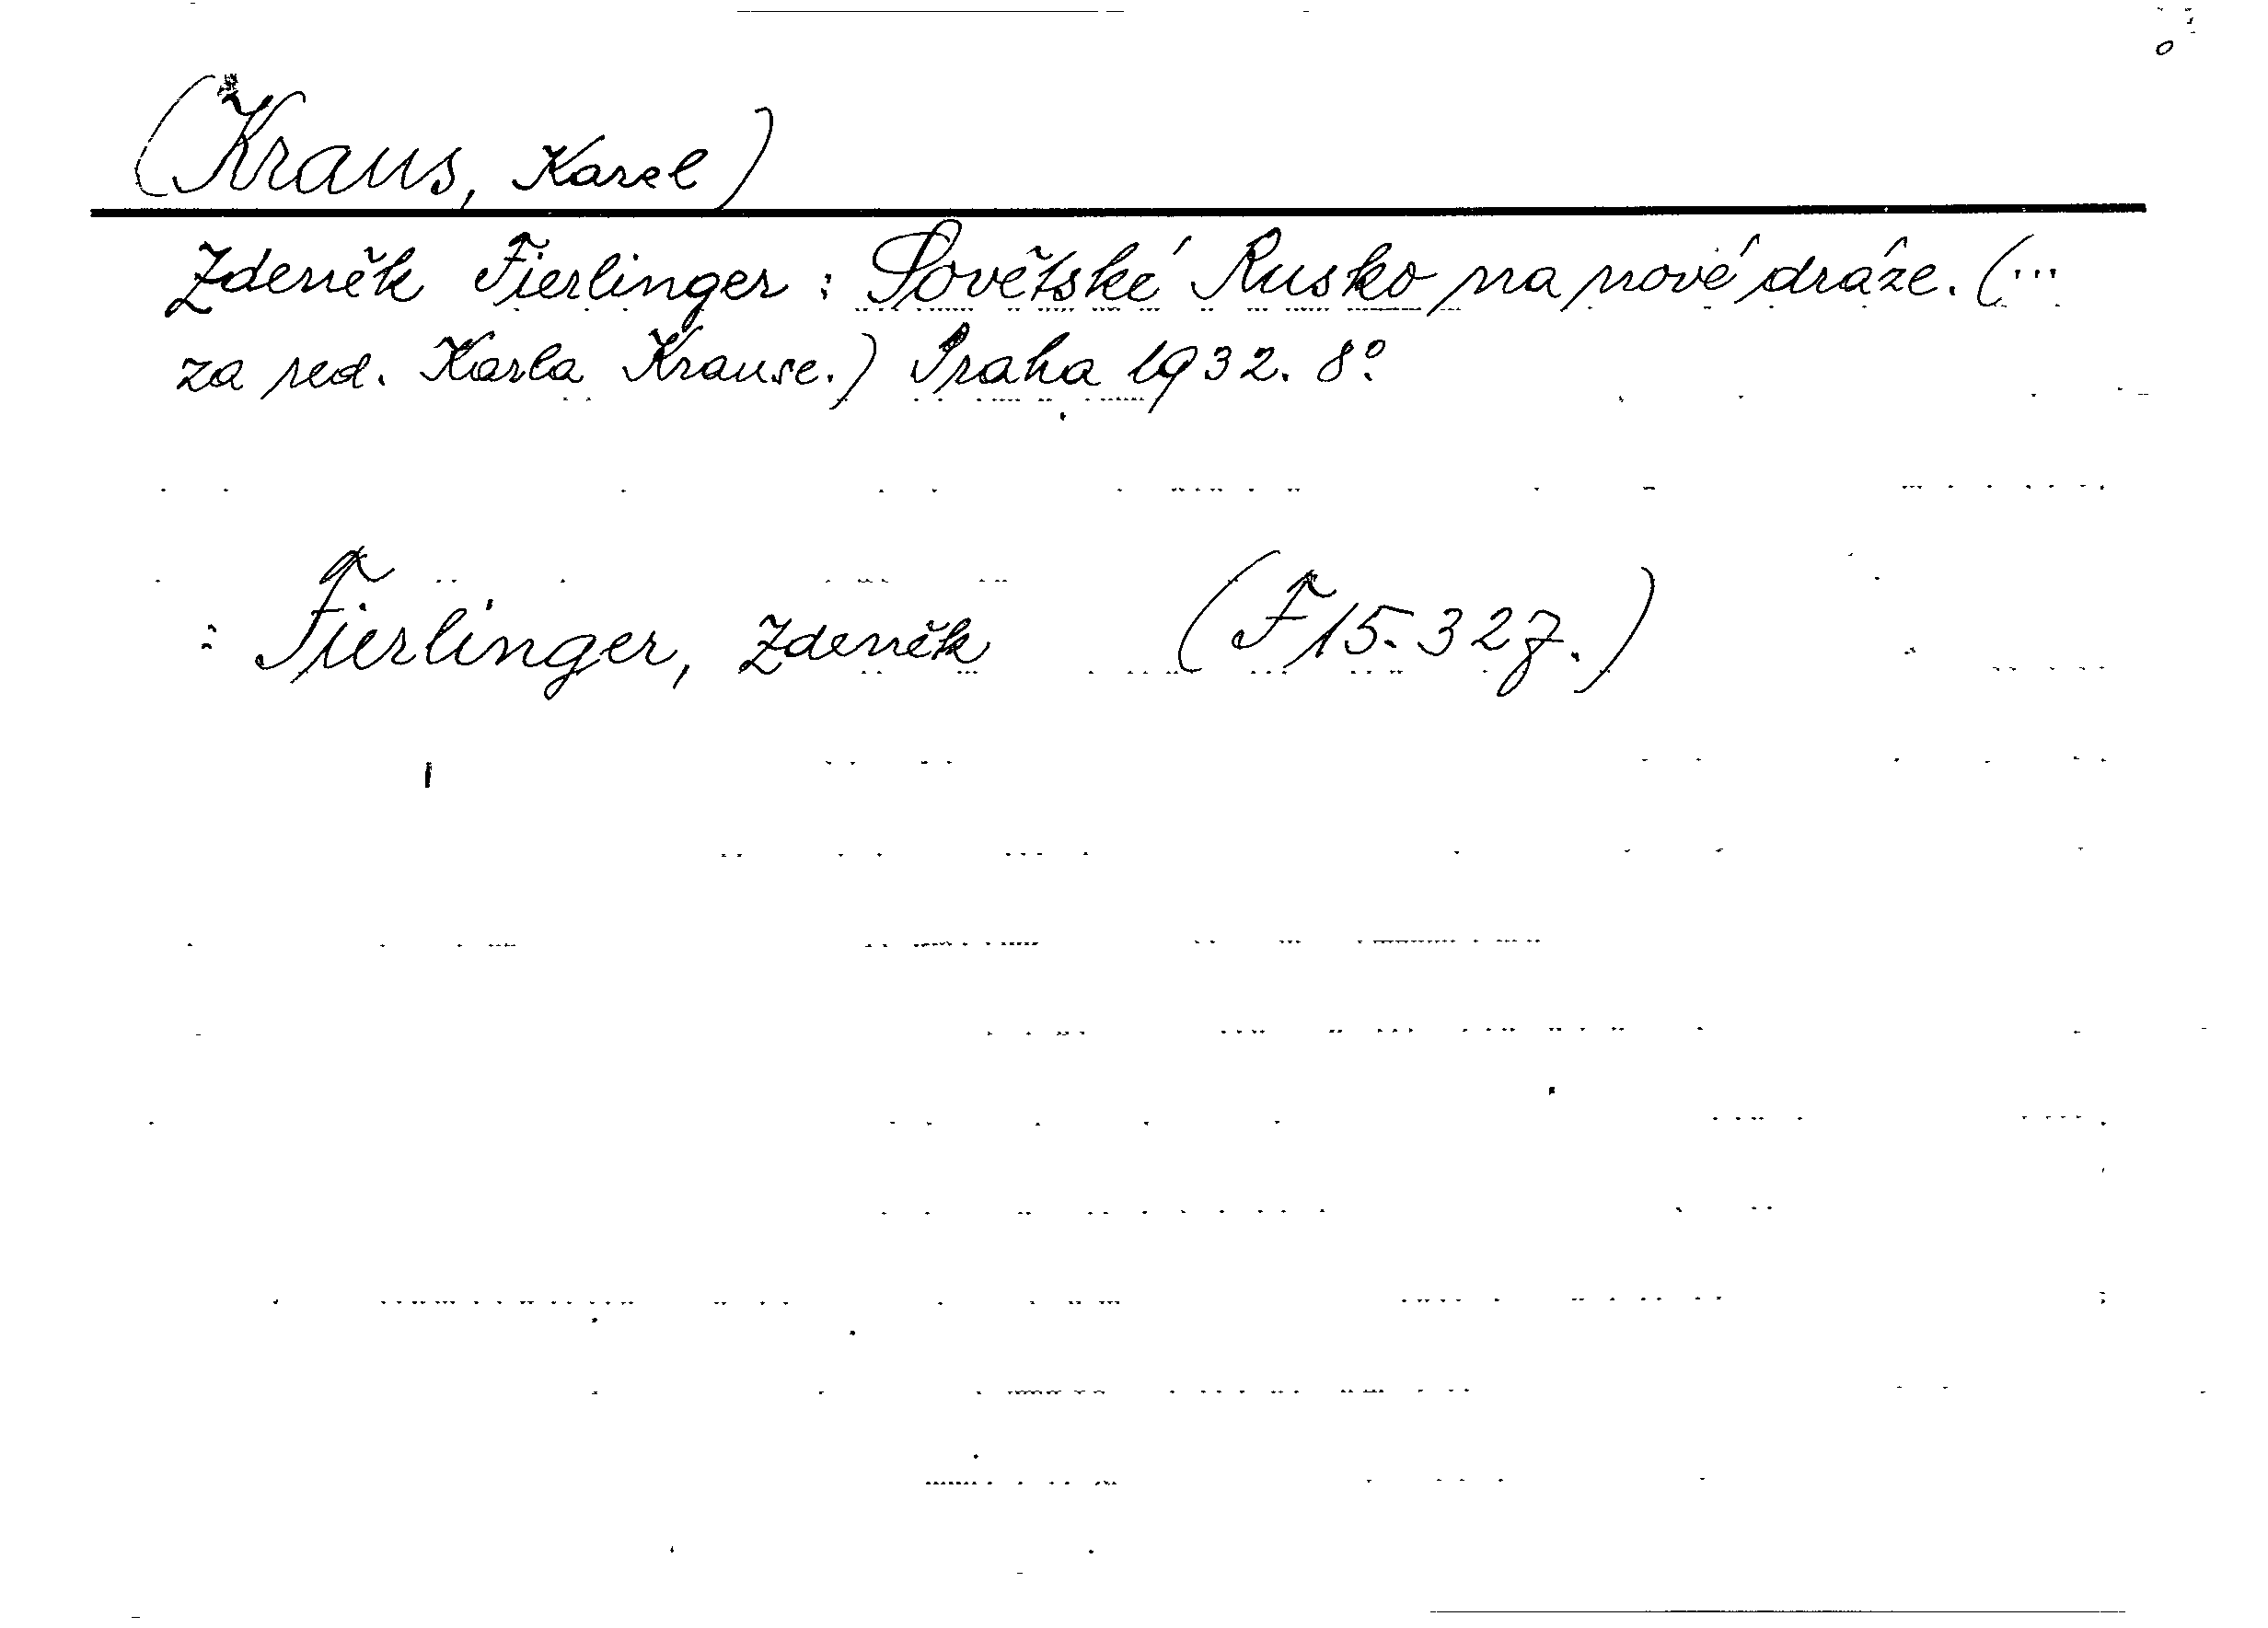 (Kraus, Karel)
Zdeněk Fierlinger: Sovětské Rusko na nové dráze. (...
za red. Karla Krause.) Praha 1932. 8°.
: Fierlinger, Zdeněk (F 15.327.)